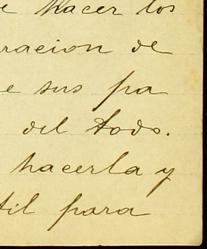 e hacer los
racion de
e sus pa
del todo.
hacerla y
til para